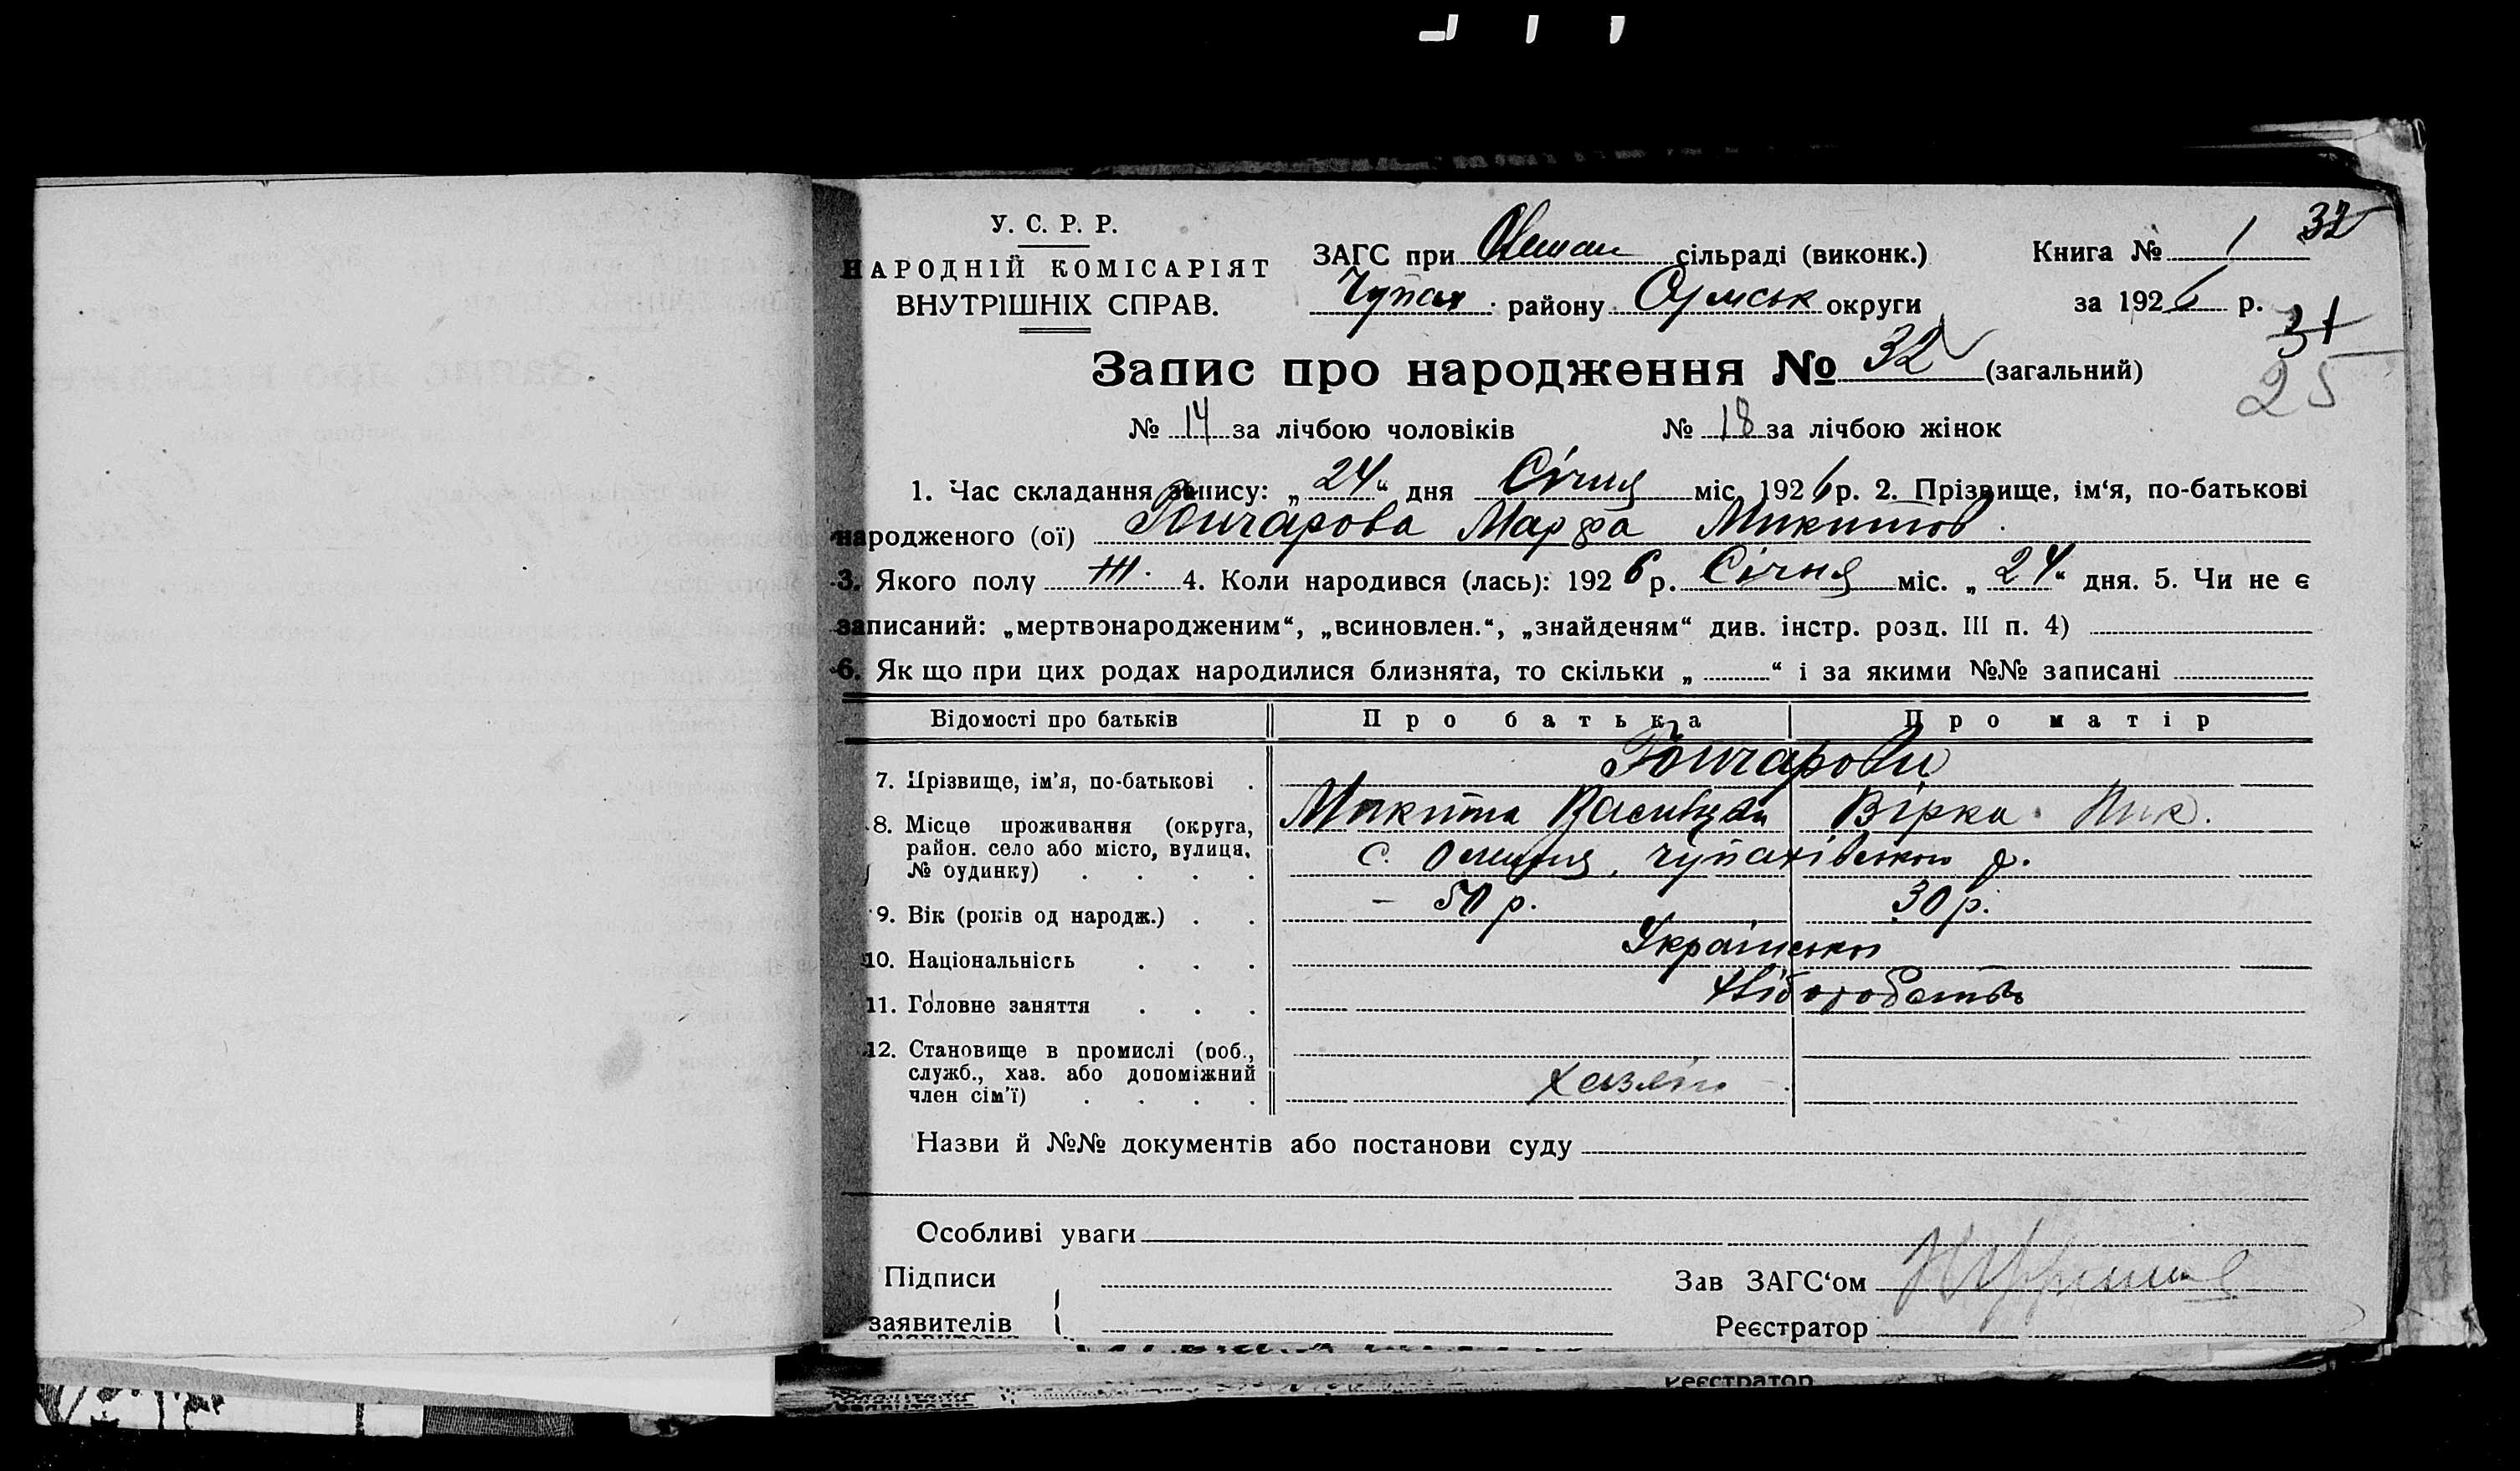 У. С. Р. Р.
НАРОДНІЙ КОМІСАРІЯТ
ВНУТРІШНІХ СПРАВ.
ЗАГС при сільраді (виконк.)
Чупах району округи
Книга № 1 32
за 1926 р.
31
25
Запис про народження № 32 (загальний)
№ 14 за лічбою чоловіків № 18 за лічбою жінок
1. Час складання запису: „ 24 “ дня Січня міс. 1926 р. 2. Прізвище, ім‘я, по-батькові
народженого (ої) Гончарова Марфа Микитов
3. Якого полу Ж. 4. Коли народився (лась): 1926 р. Січня міс. „ 24 “ дня. 5. Чи не є
записаний: „мертвонародженим“, „всиновлен.“, „знайденям“ див. інстр. розд. III п. 4)
6. Як що при цих родах народилися близнята, то скільки „ “ і за якими №№ записані
Відомості про батьків Про батька Про матір
7. Прізвище, ім’я, по-батькові . Гончарови
Микита Вірка
8. Місце проживання (округа,
район. село або місто, вулиця,
№ будинку) . . . . с. Олешня, Чупахівського р.
9. Вік (років од народж.) . . 50 р. 30 р.
10. Національність . . . Українська
11. Головне заняття . . . Хліборобство
12. Становище в промислі (роб.,
служб., хаз. або допоміжний
член сім’ї) . . . . хазяїн
Назви й №№ документів або постанови суду
Особливі уваги
Підписи
заявителів
Зав ЗАГС‘ом
Реєстратор
Реєстратор